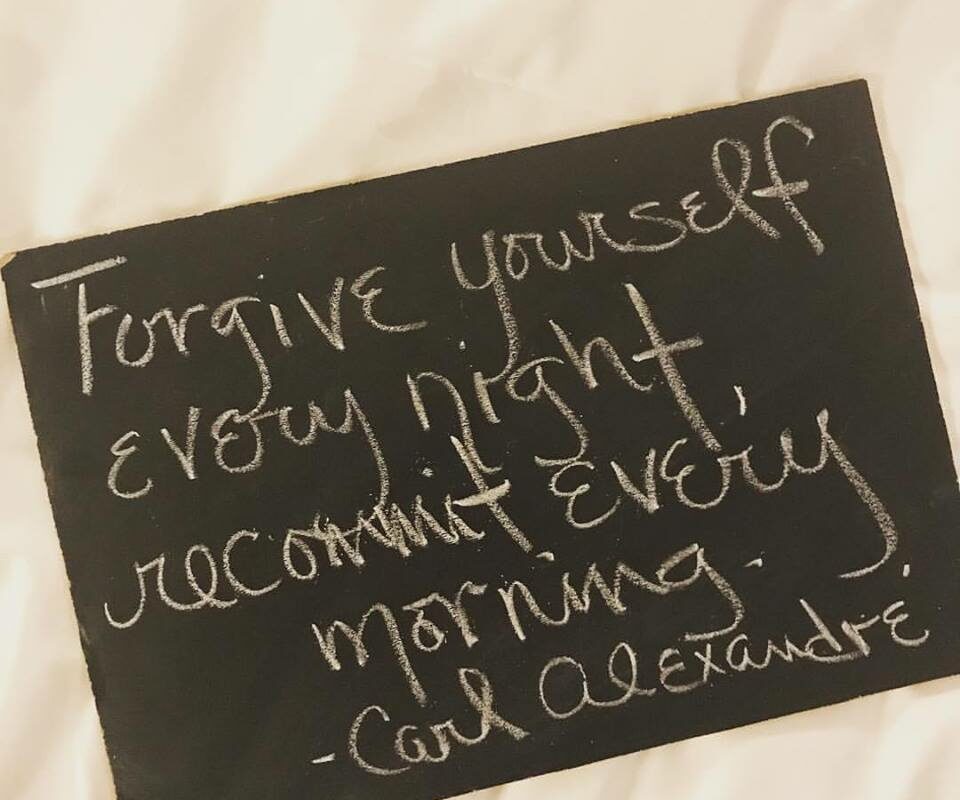 Forgive yourself
every night
recommit every
morning.
-Carl Alexandre